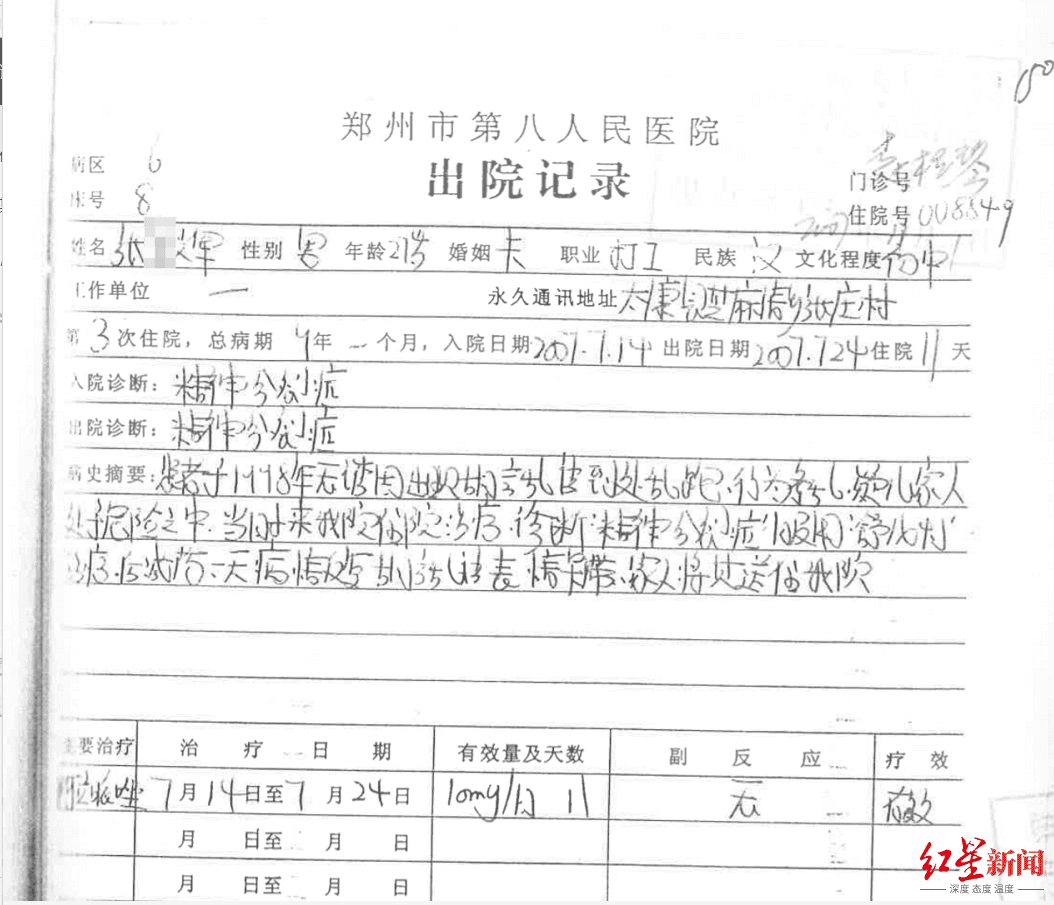 50
郑州市第八人民医院
出院记录
病区 6
床号 8
门诊号
住院号 008849
姓名 张 军 性别 男 年龄 27岁 婚姻 未 职业 打工 民族 汉 文化程度 初中
工作单位 一 永久通讯地址 太康县芝麻洼乡张庄村
第 3 次住院，总病期 9 年 一 个月，入院日期 2007.7.14 出院日期 2007.7.24 住院 11 天
入院诊断：精神分裂症
出院诊断：精神分裂症
病史摘要：患者于1998年无诱因出现胡言乱语到处乱跑，行为紊乱，疑儿家人
处于危险之中，当时来我院住院治病，诊断"精神分裂症"服用
治疗，后减药，一天病情 胡言乱语 表情 家人将其送住我院
主要治疗 治疗日期 有效量及天数 副反应 疗效
7月14日至7月24日 10mg/日 11 无 有效
月 日至 月 日
月 日至 月 日
红星新闻
深度 态度 温度